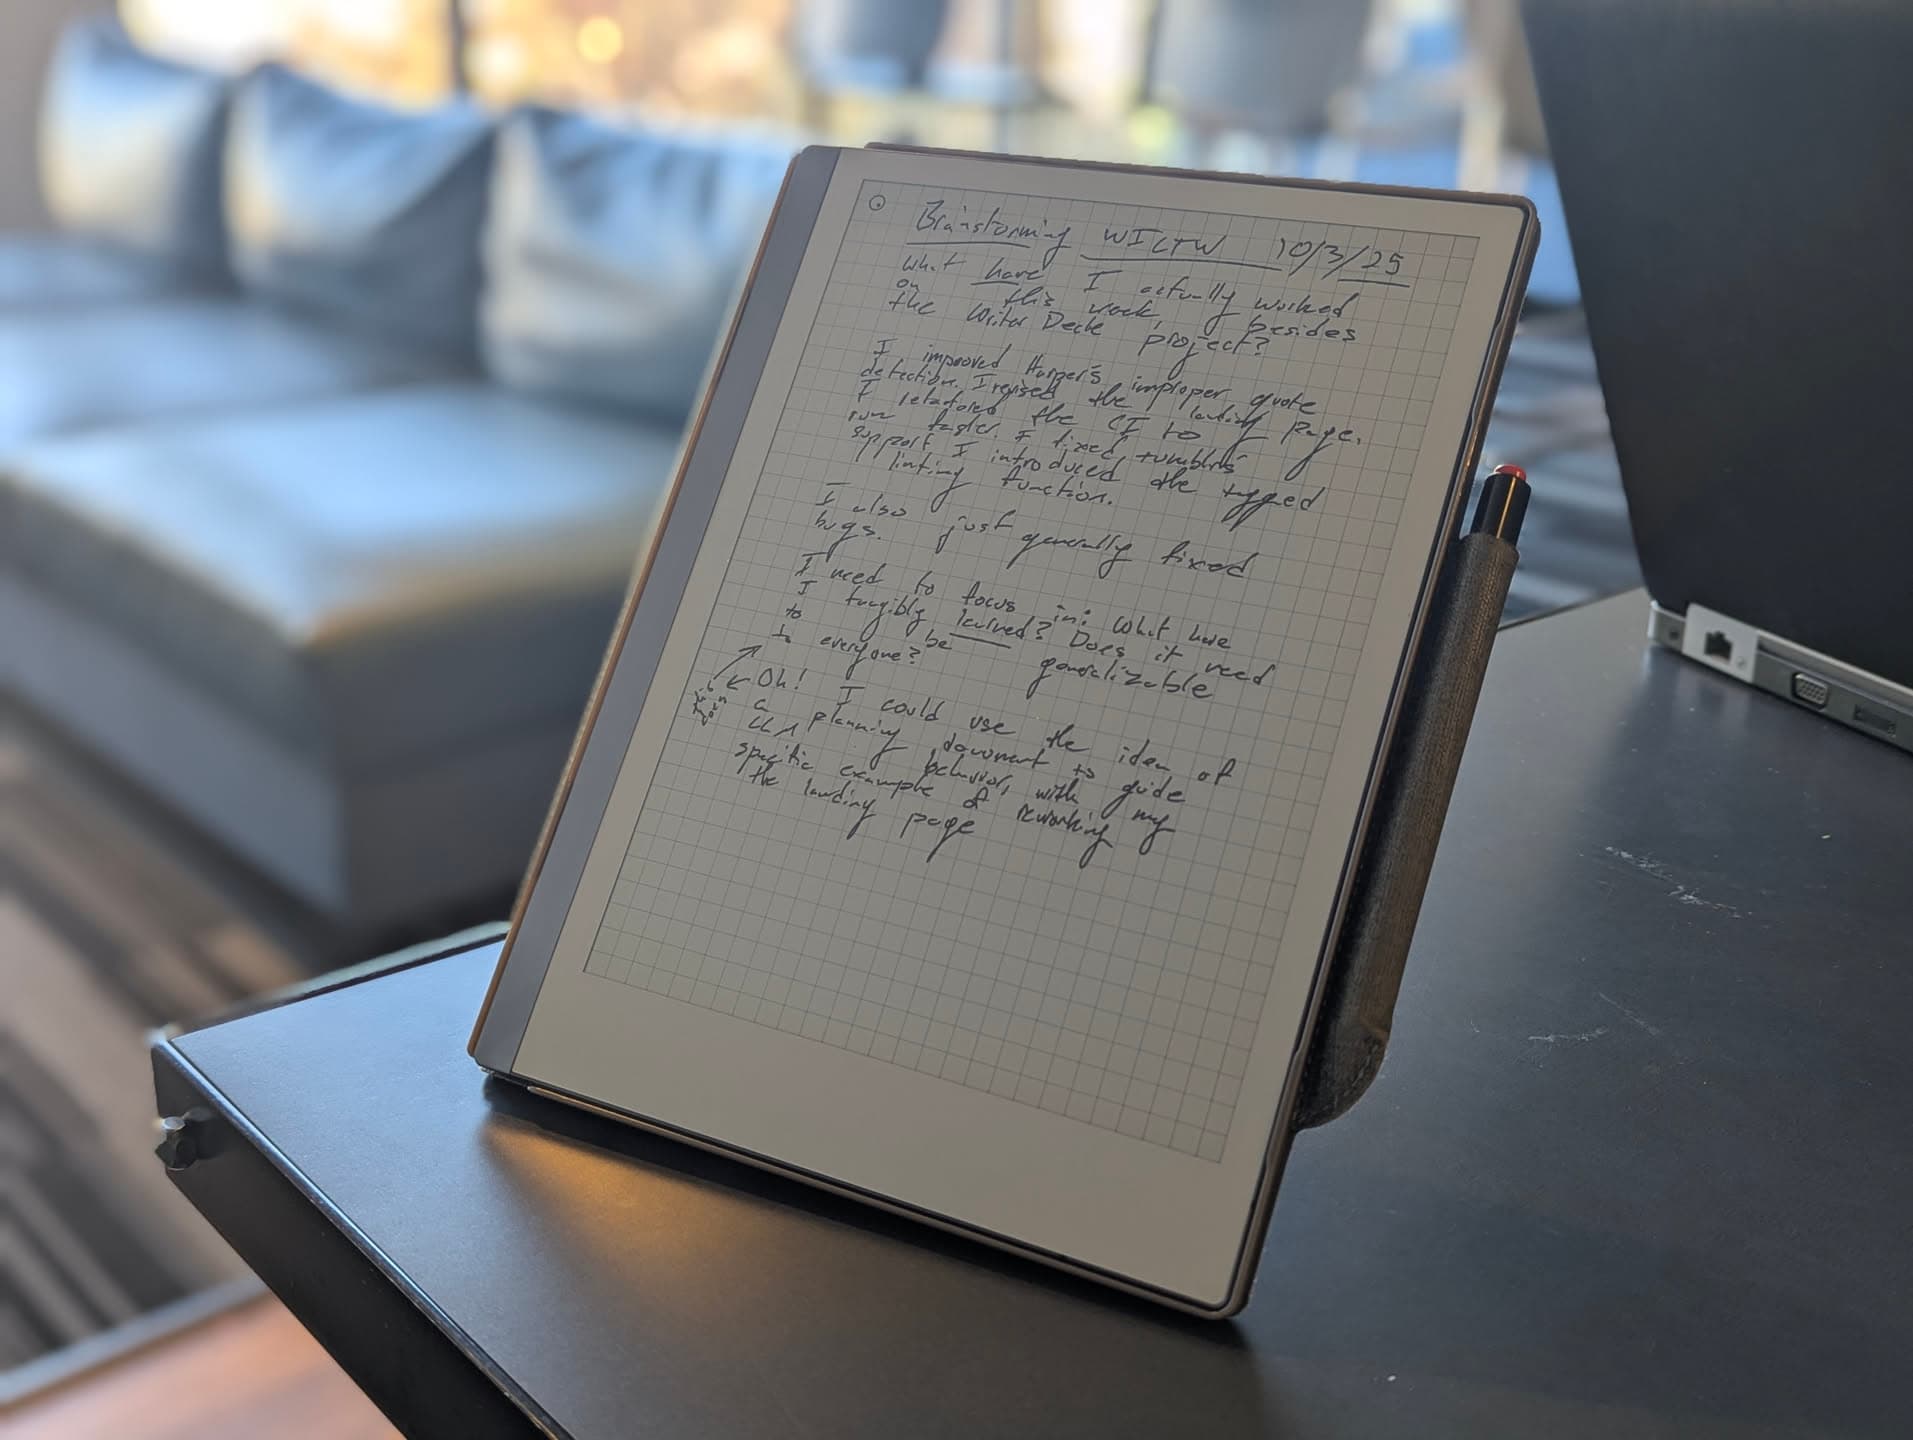 Brainstorming WICTW 10/3/25
what have I actually worked
on this week, besides
the Writer Deck project?
I improved Harper's improper quote
detection. I revised the landing page.
I refactored the CI to
run faster. I fixed tumblrs
support I introduced the tagged
linting function.
I also just generally fixed
bugs.
I need to focus in: What have
I tangibly learned? Does it need
to be generalizable
to everyone?
Oh! I could use the idea of
a planning document to guide
behavior, with my
specific example of reworking
the landing page